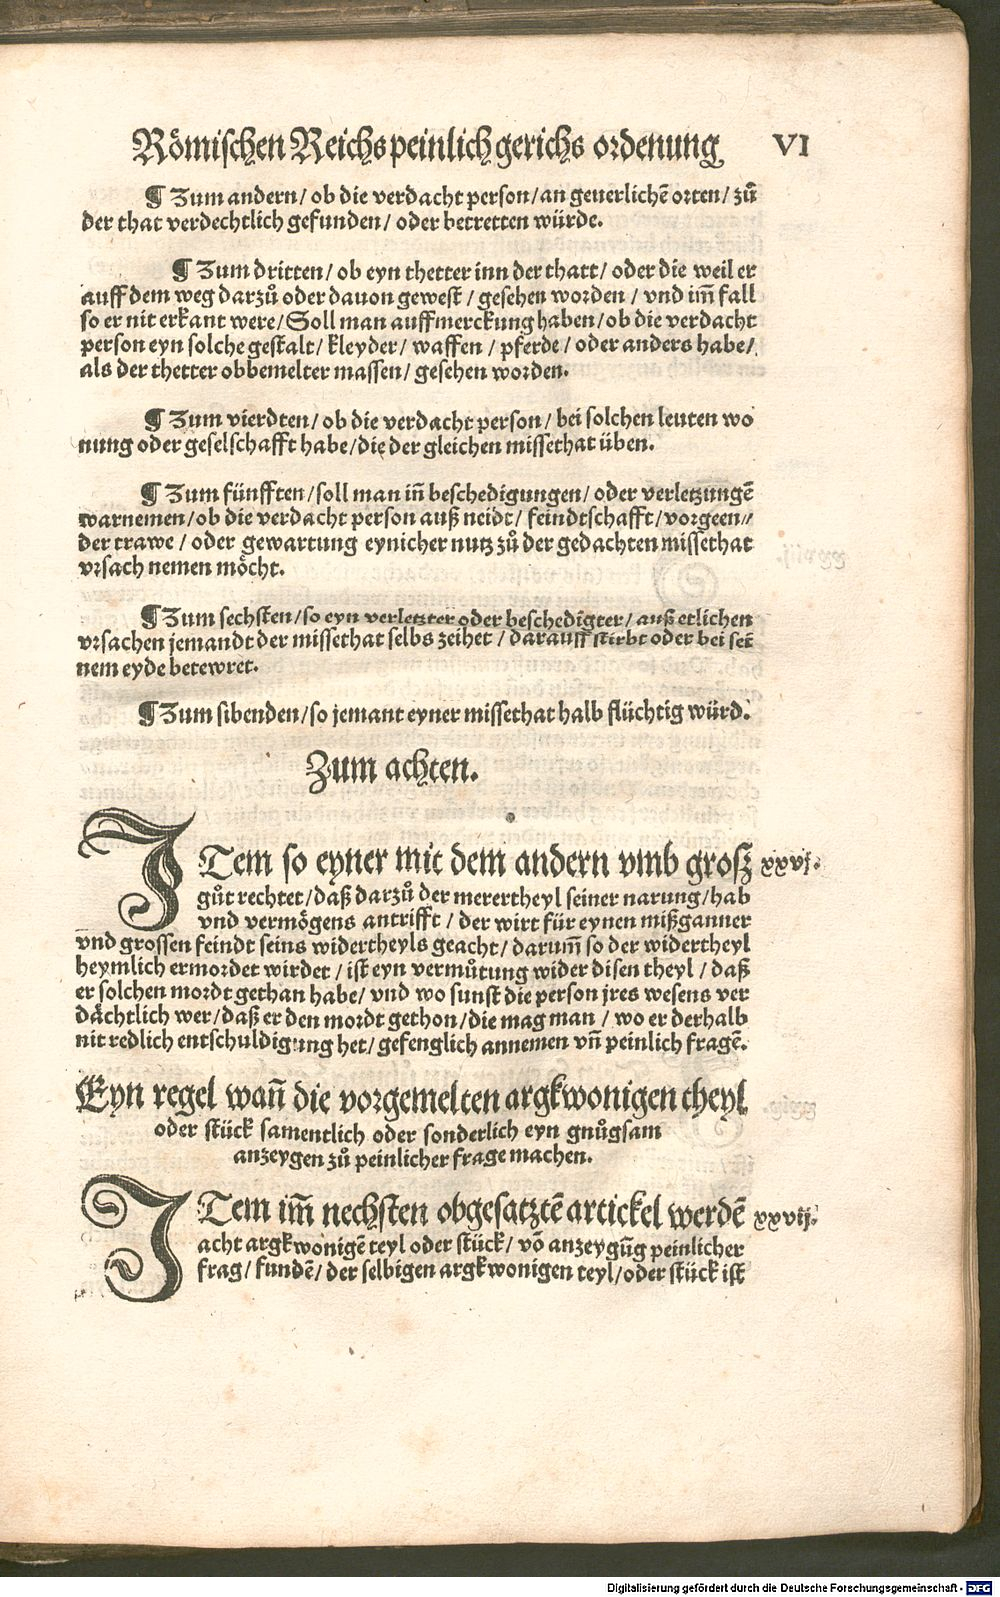 Römischen Reichs peinlich gerichs ordenung VI
¶ Zum andern / ob die verdacht person / an geuerlichẽ orten / zů
der that verdechtlich gefunden / oder betretten würde.
¶ Zum dritten / ob eyn thetter inn der thatt / oder die weil er
auff dem weg darzů oder dauon gewest / gesehen worden / vnd im̃ fall
so er nit erkant were / Soll man auffmerckung haben / ob die verdacht
person eyn solche gestalt / kleyder / waffen / pferde / oder anders habe /
als der thetter obbemelter massen / gesehen worden.
¶ Zum vierdten / ob die verdacht person / bei solchen leuten wo
nung oder geselschafft habe / die der gleichen missethat üben.
¶ Zum fünfften / soll man iñ beschedigungen / oder verletzungẽ
warnemen / ob die verdacht person auß neidt / feindtschafft / vorgeen⸗
der trawe / oder gewartung eynicher nutz zů der gedachten missethat
vrsach nemen möcht.
¶ Zum sechsten / so eyn verletzter oder beschedigter / auß etlichen
vrsachen jemandt der missethat selbs zeihet / darauff stirbt oder bei sei
nem eyde betewret.
¶ Zum sibenden / so jemant eyner missethat halb flüchtig würd.
Zum achten.
ITem so eyner mit dem andern vmb grosz xxvj.
gůt rechtet / daß darzů der merertheyl seiner narung / hab
vnd vermögens antrifft / der wirt für eynen mißganner
vnd grossen feindt seins widertheyls geacht / darum̃ so der widertheyl
heymlich ermordet wirdet / ist eyn vermůtung wider disen theyl / daß
er solchen mordt gethan habe / vnd wo sunst die person jres wesens ver
dächtlich wer / daß er den mordt gethon / die mag man / wo er derhalb
nit redlich entschuldigung het / gefenglich annemen vñ peinlich fragẽ.
Eyn regel wañ die vorgemelten argkwonigen theyl
oder stück samentlich oder sonderlich eyn gnůgsam
anzeygen zů peinlicher frage machen.
ITem im̃ nechsten obgesatztẽ artickel werdẽ xxvij.
acht argkwonigẽ teyl oder stück / võ anzeygũg peinlicher
frag / fundẽ / der selbigen argkwonigen teyl / oder stück ist
Digitalisierung gefördert durch die Deutsche Forschungsgemeinschaft - DFG